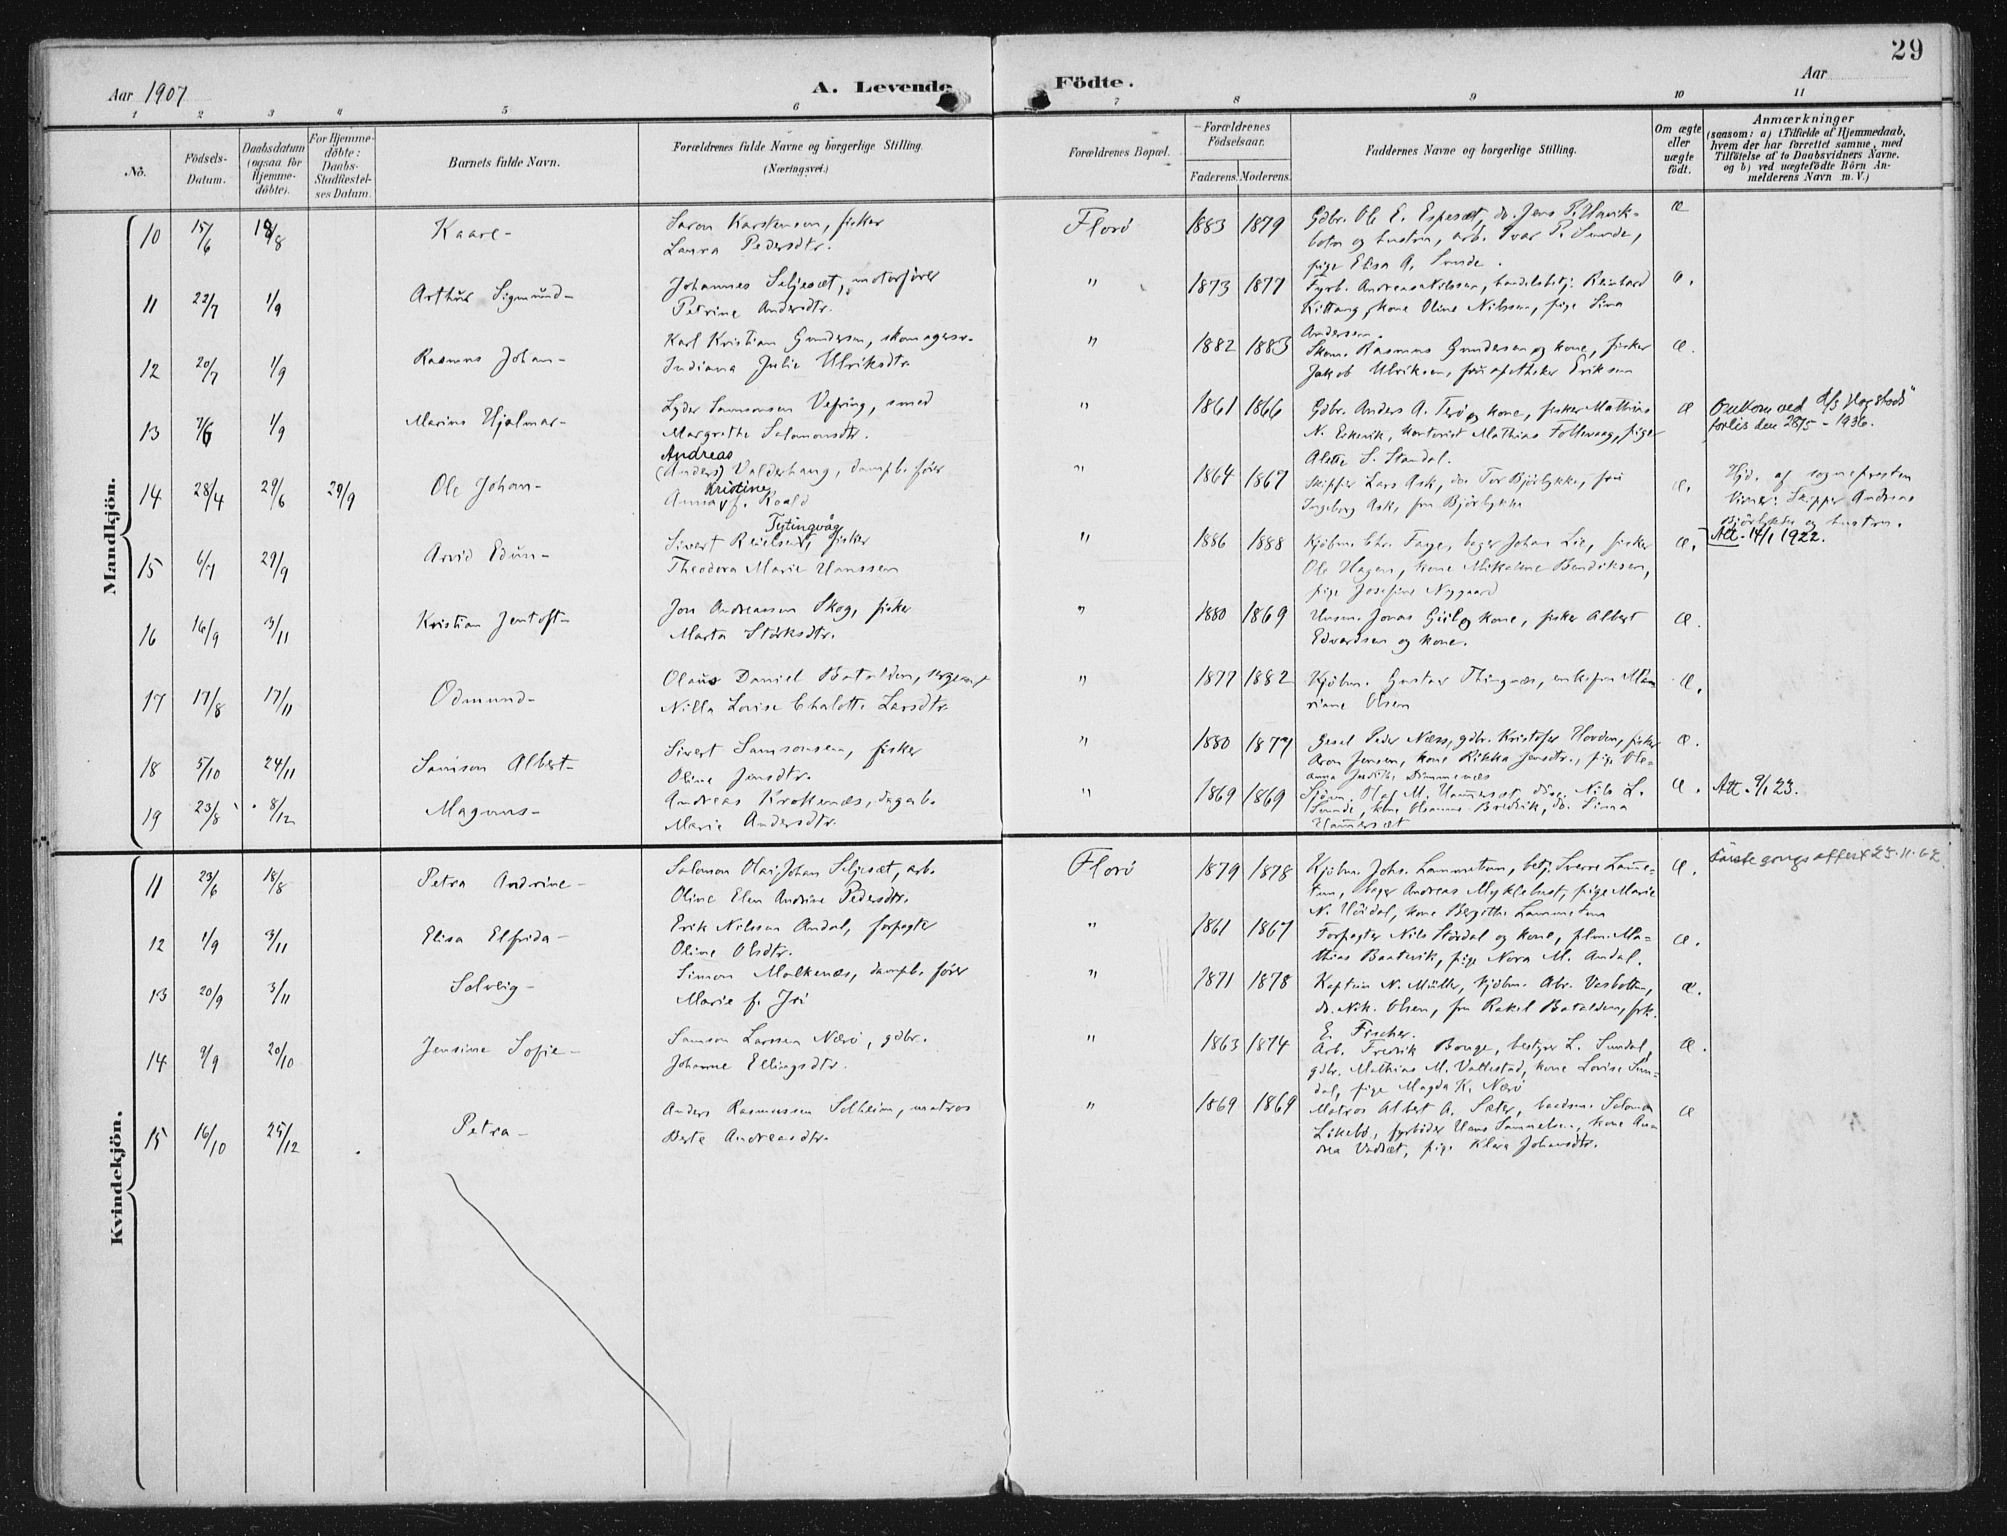 29
Aar 1907
A. Levende Födte.
Aar
1 2 3 4 5 6 7 8 9 10 11
No.
Födsels-
Datum.
Daabsdatum
(ogsaa for
Hjemme-
döbte).
For Hjemme-
döbte:
Daabs-
Stadfæstel-
ses Datum.
Barnets fulde Navn.
Forældrenes fulde Navne og borgerlige Stilling.
(Næringsvei.)
Forældrenes Bopæl.
Forældrenes
Födselsaar.
Faderens. Moderens.
Faddernes Navne og borgerlige Stilling.
Om ægte
eller
uægte
födt.
Anmærkninger
(saasom: a) i Tilfælde af Hjemmedaab,
hvem der har forrettet samme, med
Tilföielse af to Daabsvidners Navne.
og b) ved uægtefödte Börn An-
melderens Navn m. V.)
Mandkjön.
10 15/6 18/8 Kaare-
Karstensen, fisker
Laura Pedersdtr.
Florö 1883 1879
Gdbr. Ole E. Espesæt, do. Jens P.
og hustru, arb. Ivar P. Sunde,
pige Elisa A. Sunde.
æ
11 22/7 1/9 Arthur Sigmund-
Johannes Seljesæt, motorfører
Petrine Andersdtr.
" 1873 1877
Fyrb. Andreas Nilssen, handelsbetj. Reinhard
Kittang, kone Oline Nilssen, pige Lina
Anderssen.
12 20/7 1/9 Rasmus Johan-
Karl Kristian Gundersen, skomagersv.
Indiana Julie Ulriksdtr.
" 1882 1883
Skom. Rasmus Gundersen og kone, fisker
Jakob Ulriksen, fru apotheker Eriksen
æ.
13 7/6 1/9 Marius Hjalmar-
Lyder Samsonsen Vefring, smed
Margrethe Salomonsdtr.
" 1861 1866
Gdbr. Anders A. Terö og kone, fisker Mathias
N. Eskevik, kontorist Mathias Follevaag, pige
Alette S. Standal.
æ
Omkom ved d/s "Hogstads"
forlis den 28/5 - 1936.
14 28/4 29/6 29/9 Ole Johan-
Andreas
(Anders) Valderhaug, dampb. fører
Kristine
Anna f. Roald
" 1864 1867
Skipper Lars Ask, do. Tor Björlykke, fru
Ingeborg Ask, fru Björlykke
æ.
Hjd. af sognepresten
Skipper Andreas
Björlykke og hustru.
15 6/7 29/9 Arvid Edvin-
Tytingvåg
Sivert Reielsen, fisker
Theodora Marie Hanssen
" 1886 1888
Kjöbm. Chr. Faye, bager Johan Lie, fisker
Ole Hagen, kone Mikaline Bendiksen,
pige Josefine Nygaard
æ.
Att. 14/1 1922.
16 16/9 3/11 Kristian Jentoft-
Jon Andreassen Skog, fisker
Marta Störksdtr.
" 1880 1869
Husm. Jonas og kone, fisker Albert
Edvardsen og kone.
æ.
17 17/8 17/11 Odmund-
Olaus Daniel Batalden,
Nilla Lovise Chalotte Larsdtr.
" 1877 1882
Kjöbm. Gustav Thingnæs, enkefru Ma-
riane Olsen
æ.
18 5/10 24/11 Samson Albert-
Sivert Samsonsen, fisker
Oline Jensdtr.
" 1880 1877
Gesel Peder Næss, gdbr. Kristofer Hovden, fisker
Aron Jensen, kone Rikka Jensdtr., pige Ole-
anna Judithe Dimmenæs
æ.
19 23/8 8/12 Magnus-
Andreas Krokenæs, dagarb.
Marie Andersdtr.
" 1869 1869
Olaf M. Hammersæt, Nils L.
Sunde, kone Bredvik, do. Lina
Hammersæt
æ.
Att. 9/1 23.
Kvindekjön.
11 23/6 18/8 Petra Andrine-
Salomon Olai Johan Seljesæt, arb.
Oline Elen Andrine Pedersdtr.
Florö 1879 1878
Kjöbm. Johs. Lammetun, betj. Sverre Lamme-
tun, bager Andreas Myklebust, pige Marie
N. Hördal, kone Bergitte Lammetun
æ.
Förstegangs attest 25.11.62
12 1/9 3/11 Elisa Elfrida-
Erik Nilssen Andal, forpagter
Oline Olsdtr.
" 1861 1867
Forpagter Nils Stördal og kone, plm. Ma-
thias Baatevik, pige Nora M. Andal.
æ.
13 20/9 3/11 Solveig-
Simon Molkenæs, dampb. fører
Marie f. Iri
" 1871 1878
Kaptein N. Müller, kjöbm. Abr. Vasbotten,
do. Nik. Olsen, fru Rakel Batalden, frk.
E. Fischer.
æ.
14 9/9 20/10 Jensine Sofie-
Samson Larssen Nærö, gdbr.
Johanne Ellingsdtr.
" 1863 1874
Arb. Fredrik Bauge, bestyrer L. Sundal,
gdbr. Mathias M. Vallestad, kone Lovise Sun-
dal, pige Magda K. Nærö
æ.
15 16/10 25/12 Petra-
Anders Rasmussen Solheim, matros
Berte Andreasdtr.
" 1869 1869
Matros Albert A. Sæter, baadsm. Salomon
fyrböder Hans Samuelsen, kone An-
pige Klara Johansdtr.
æ